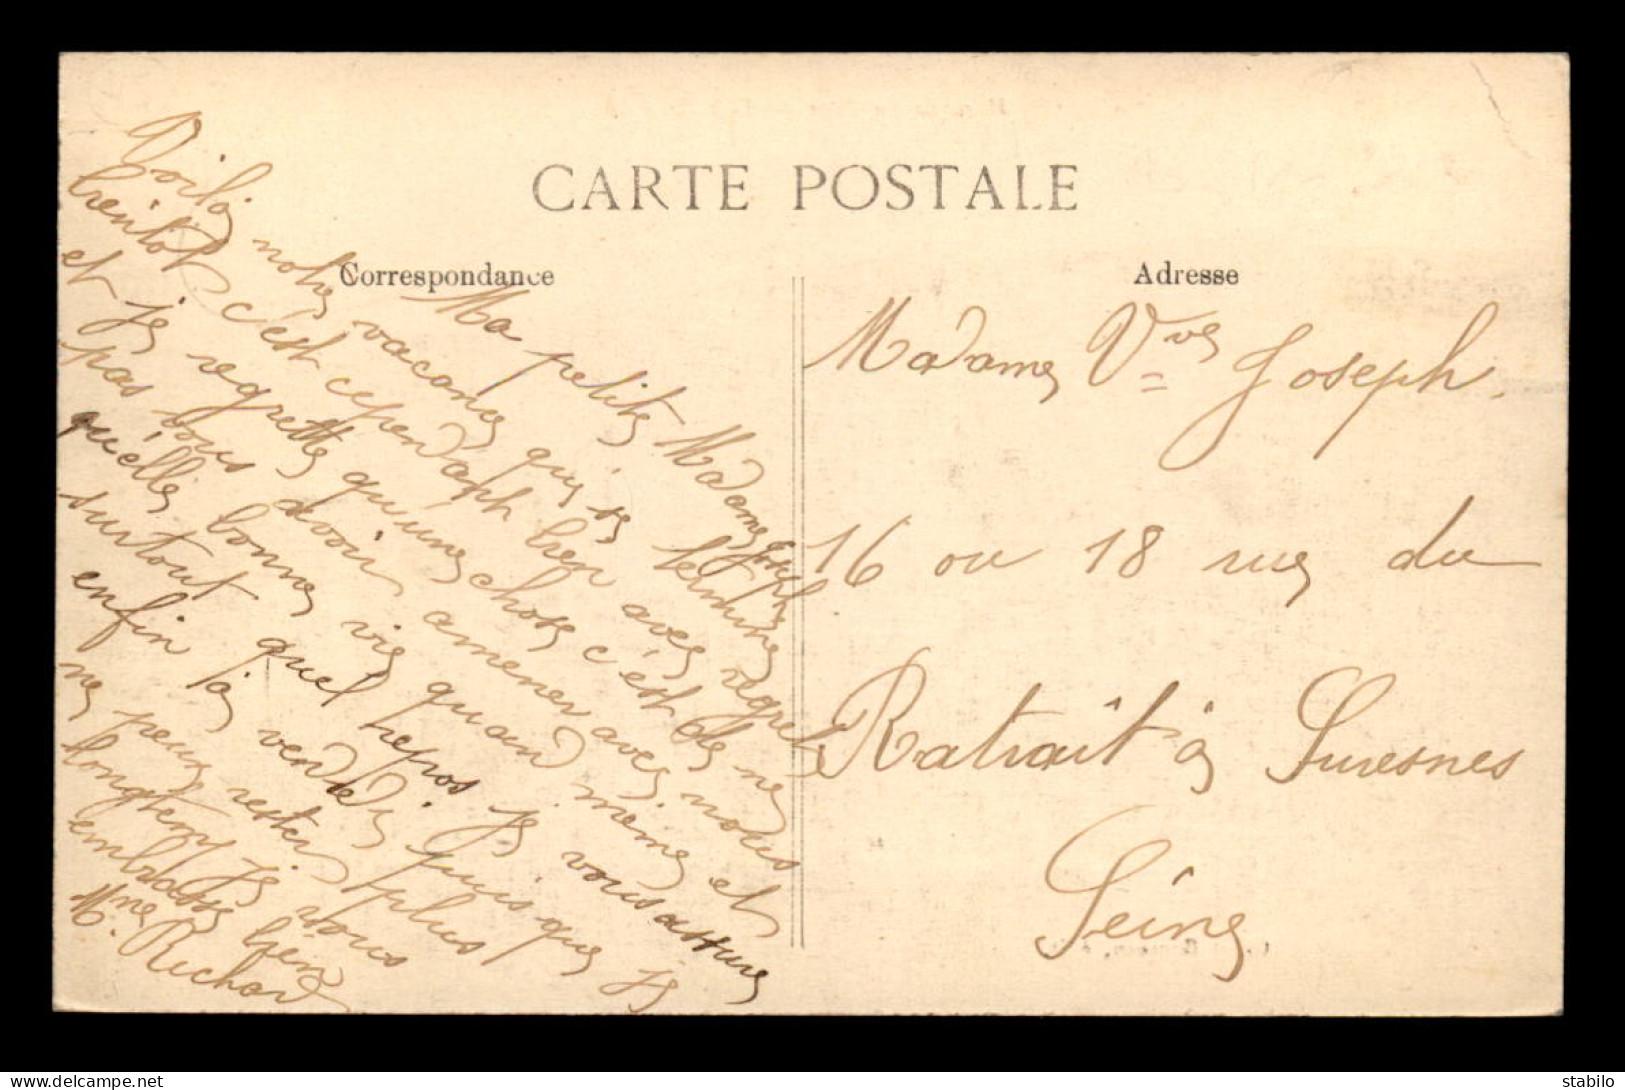 CARTE POSTALE
Correspondance
Adresse
Ma petite Madame Joseph
Voilà notre vacance qui se termine
bientôt c'est cependaph bien avec regret
et je regrette qu'une chose c'est de ne
pas vous avoir amener avec nous
qu'élle bonne vie quand même et
surtout quel repos je vous assure
enfin à vendredi puis que je
ne peux rester plus
longtemp je vous
embrasse bien
Mme Richard
Madame Vve Joseph
16 ou 18 rue du
Ratrait à Suresnes
Seine
stabilo